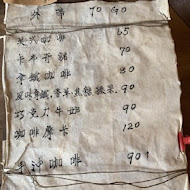 咖啡 TO GO
美式咖啡 65
卡布奇諾 70
拿鐵咖啡 80
風味拿鐵.香草.焦糖.榛果. 90
巧克力牛奶 90
咖啡摩卡 120
手沖咖啡 90↑